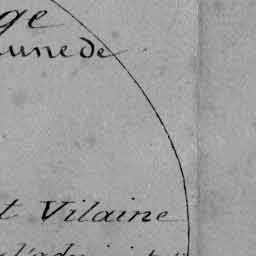 ge
une de
t Vilaine